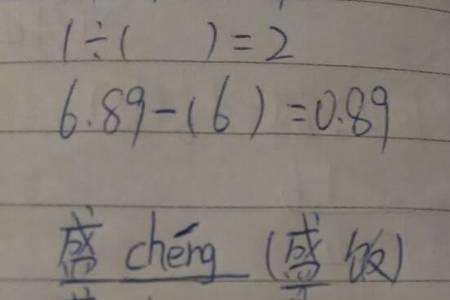 1÷( )=2
6.89-(6)=0.89
盛 chéng (盛饭)